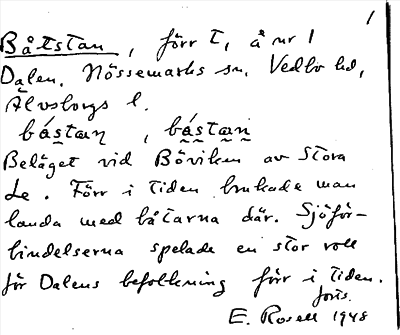 1
Båtstan, förr t, å nr 1
Dalen. Nössemarks sn. Vedbo hd,
Älvsborgs l.
bástaɳ, bástaɳi
Beläget vid Båviken av Stora
Le. Förr i tiden brukade man
landa med båtarna där. Sjöför-
bindelserna spelade en stor roll
för Dalens befolkning förr i tiden.
forts.
E. Rosell 1948